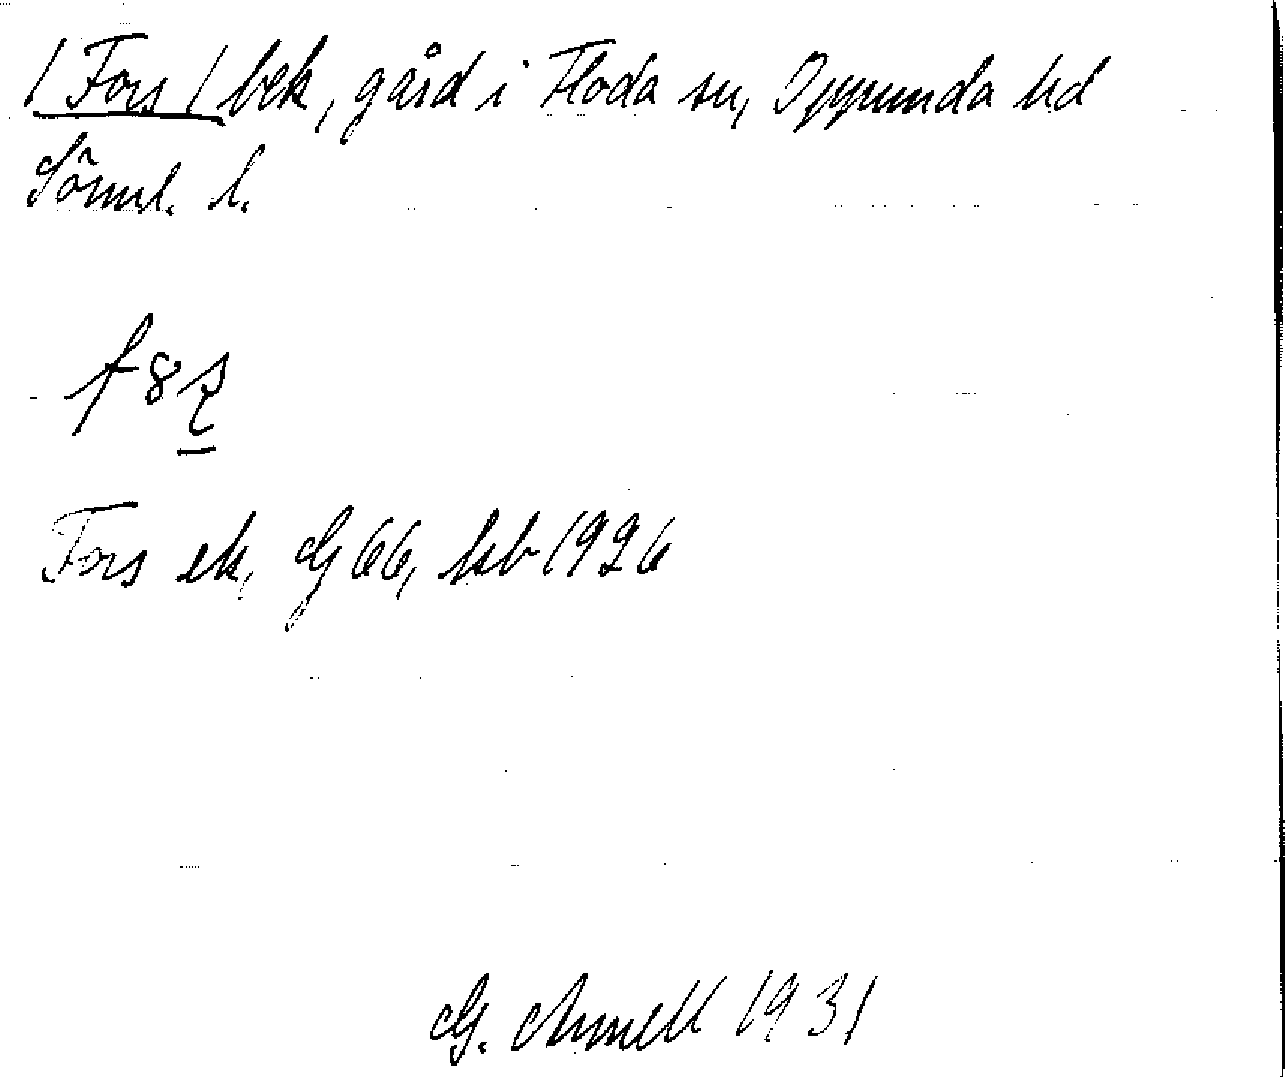 /Fors/ bek, gård i Floda sn, Oppunda hd
Söml. l.
Fors ek, G 66, kb 1926
G. Armell 1931